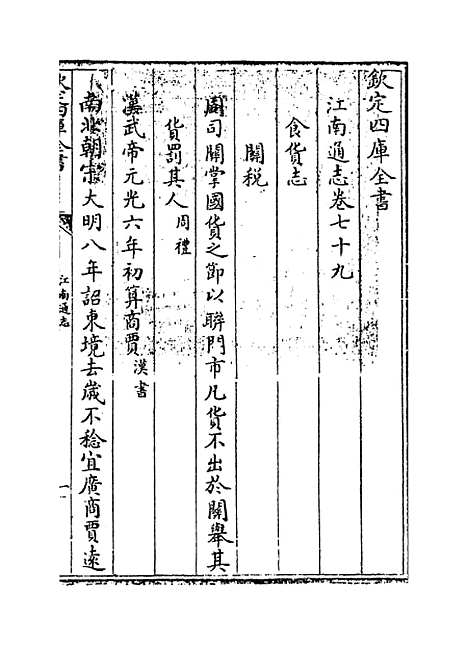 欽定四庫全書
江南通志卷七十九
食貨志
關稅
周司關掌國貨之節以聯門市凡貨不出於關舉其
貨罰其人周禮
漢武帝元光六年初算商賈漢書
南北朝宋大明八年詔東境去歲不稔宜廣商賈遠
欽定四庫全書
江南通志
一